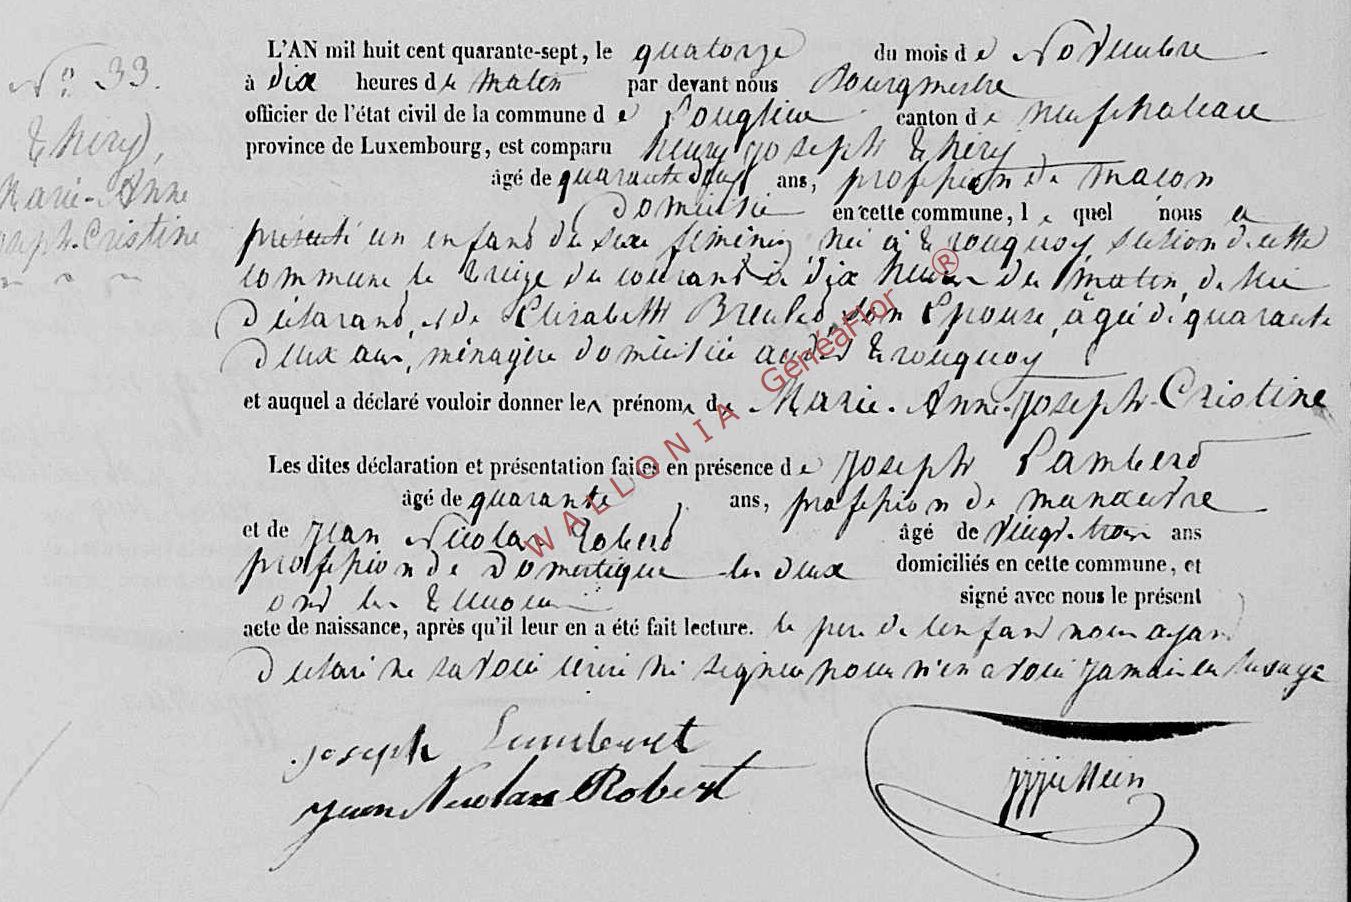 N° 33.
Thiry,
Marie-Anne
Joseph-Cristine
L'AN mil huit cent quarante-sept, le quatorze du mois de Novembre
à dix heures du matin par devant nous Bourgmestre
officier de l'état civil de la commune de Longlier canton de neufchateau
province de Luxembourg, est comparu henry joseph Thiry
âgé de quarante ans, profession de macon
Domicilié en cette commune, le quel nous a
présenté un enfant du sexe féminin, née à tronquoy section de cette
commune le treize du courant à dix heures du matin, de lui
Déclarant, et de Elisabeth son Epouse, âgée de quarante
Deux ans, ménagère domiciliée audit tronquoy
et auquel a déclaré vouloir donner les prénoms de Marie-Anne-Joseph-Cristine
Les dites déclaration et présentation faites en présence de Joseph Lambert
âgé de quarante ans, profession de manœuvre
et de Jean Nicolas Robert âgé de vingt-trois ans
profession de Domestique les deux domiciliés en cette commune, et
ont les témoins signé avec nous le présent
acte de naissance, après qu'il leur en a été fait lecture. le pere de l'enfant nous ayant
Déclaré ne savoir écrire ni signer pour n'en avoir jamais eu l'usage
joseph Lambert
jean Nicolas Robert
WALLONIA GénéaFlor ®